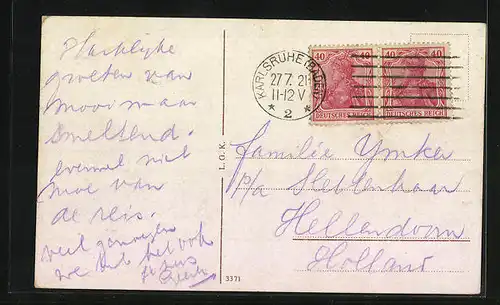 Hartelijke
groeten van
mooi maar
smeltend.
evenwel niet
moe van
de reis.
veel genoegen
we het ook
KARLSRUHE (BADEN)
27.7.21
11-12 V
* 2 *
40 40
DEUTSCHES REICH
40 40
DEUTSCHES REICH
Familie Ymker
p/a
Hellendoorn
Holland
L.O.K.
3371